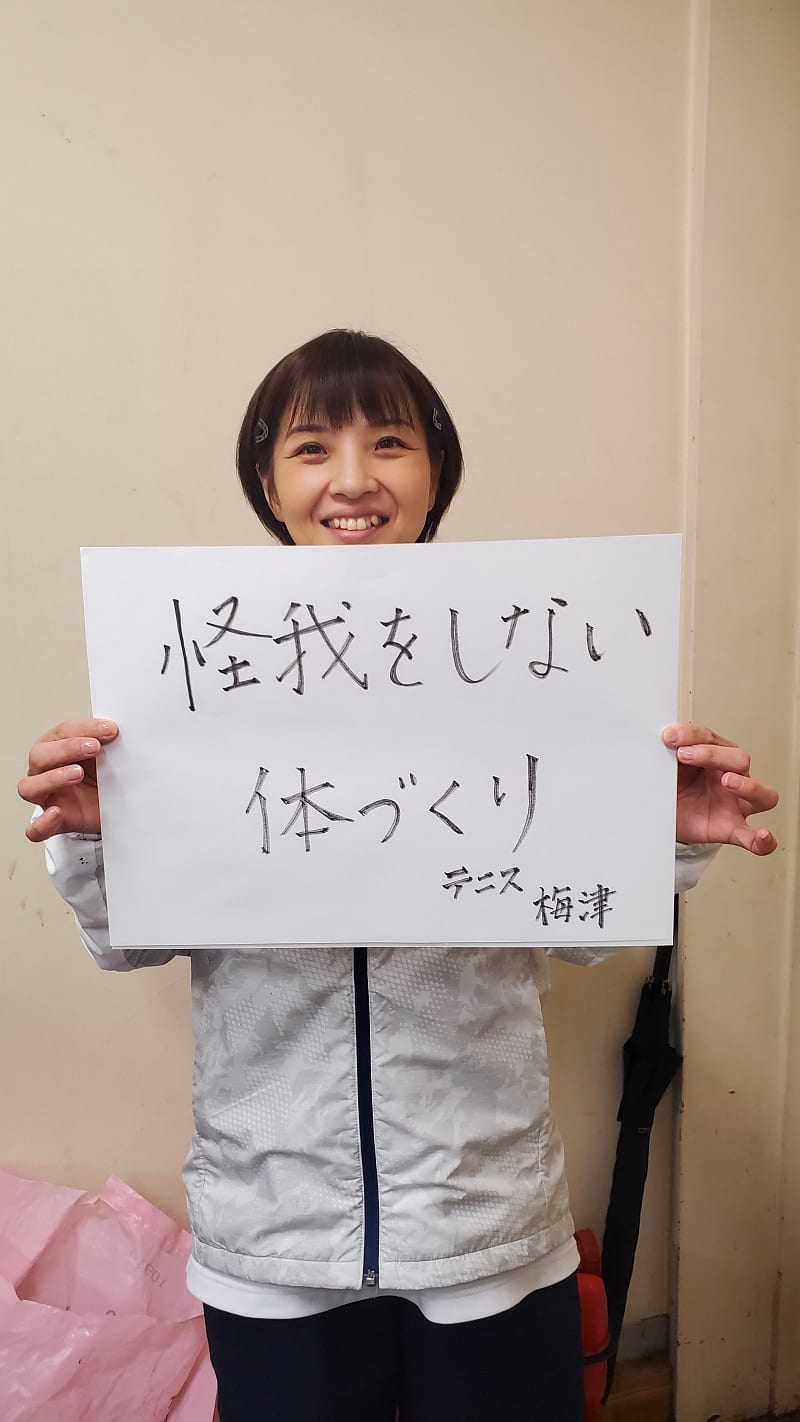 怪我をしない
体づくり
テニス 梅津